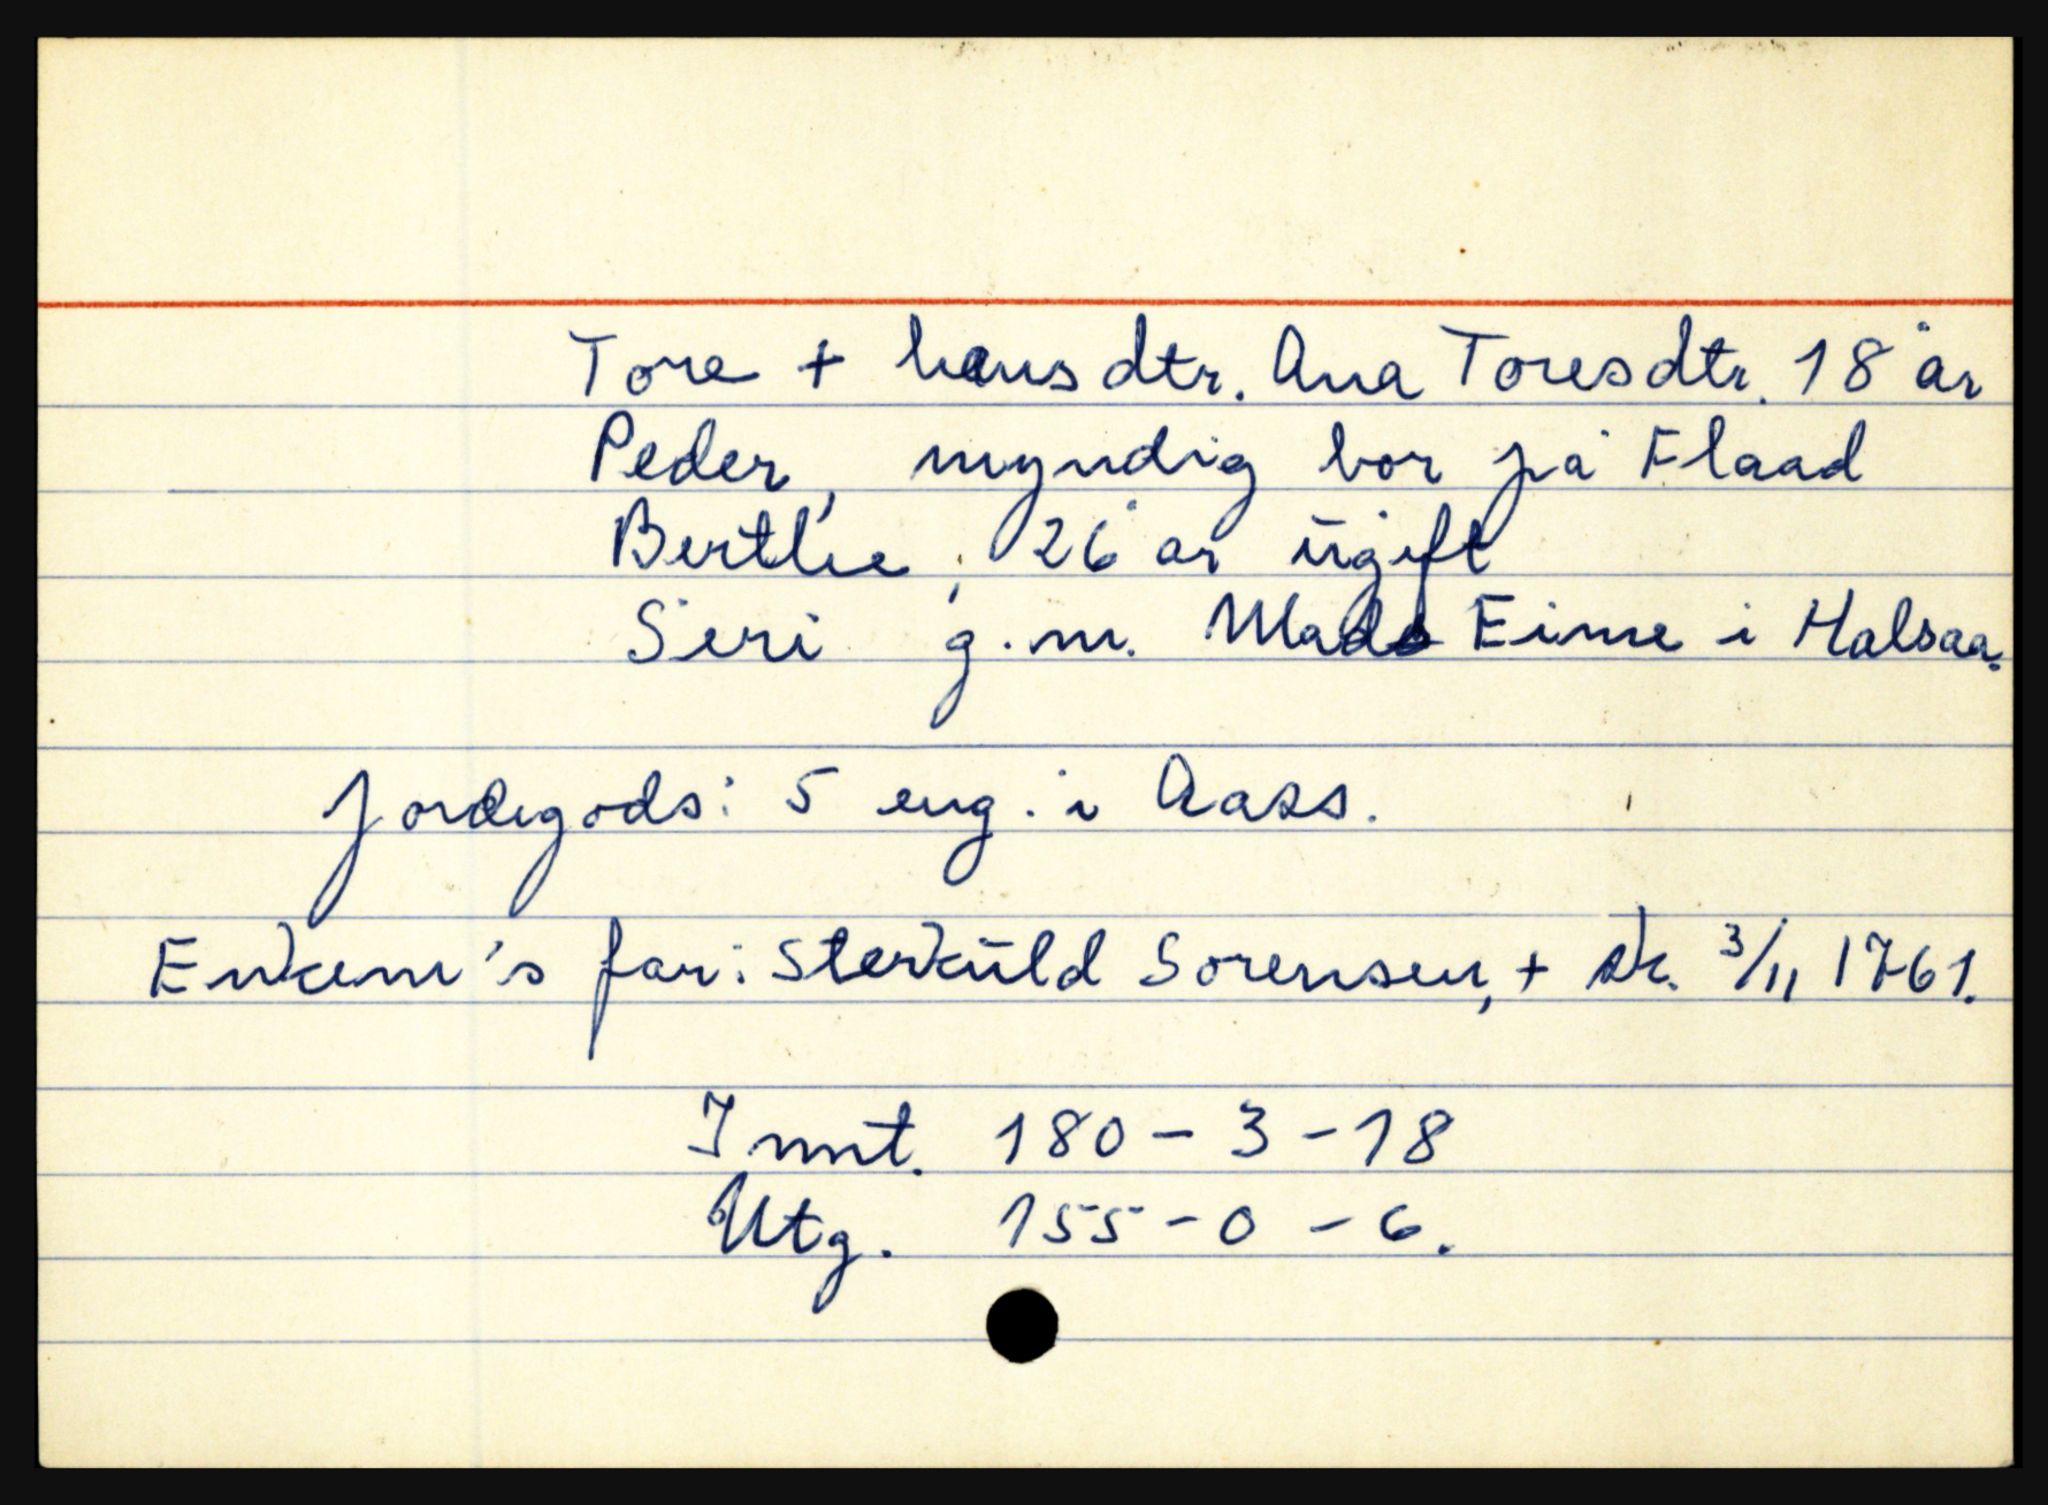 Tore + hans dtr. Ana Toresdtr. 18 år
Peder, myndig bor på Flaad
Berthe, 26 år ugift
Siri g.m. Mads Eime i Halsaa.
Jordegods: 5 eng. i Aass.
Enken's far: Sterkuld Sorensen, + sk. 3/11 1761.
Innt. 180 - 3 - 18
Utg. 155 - 0 - 6.